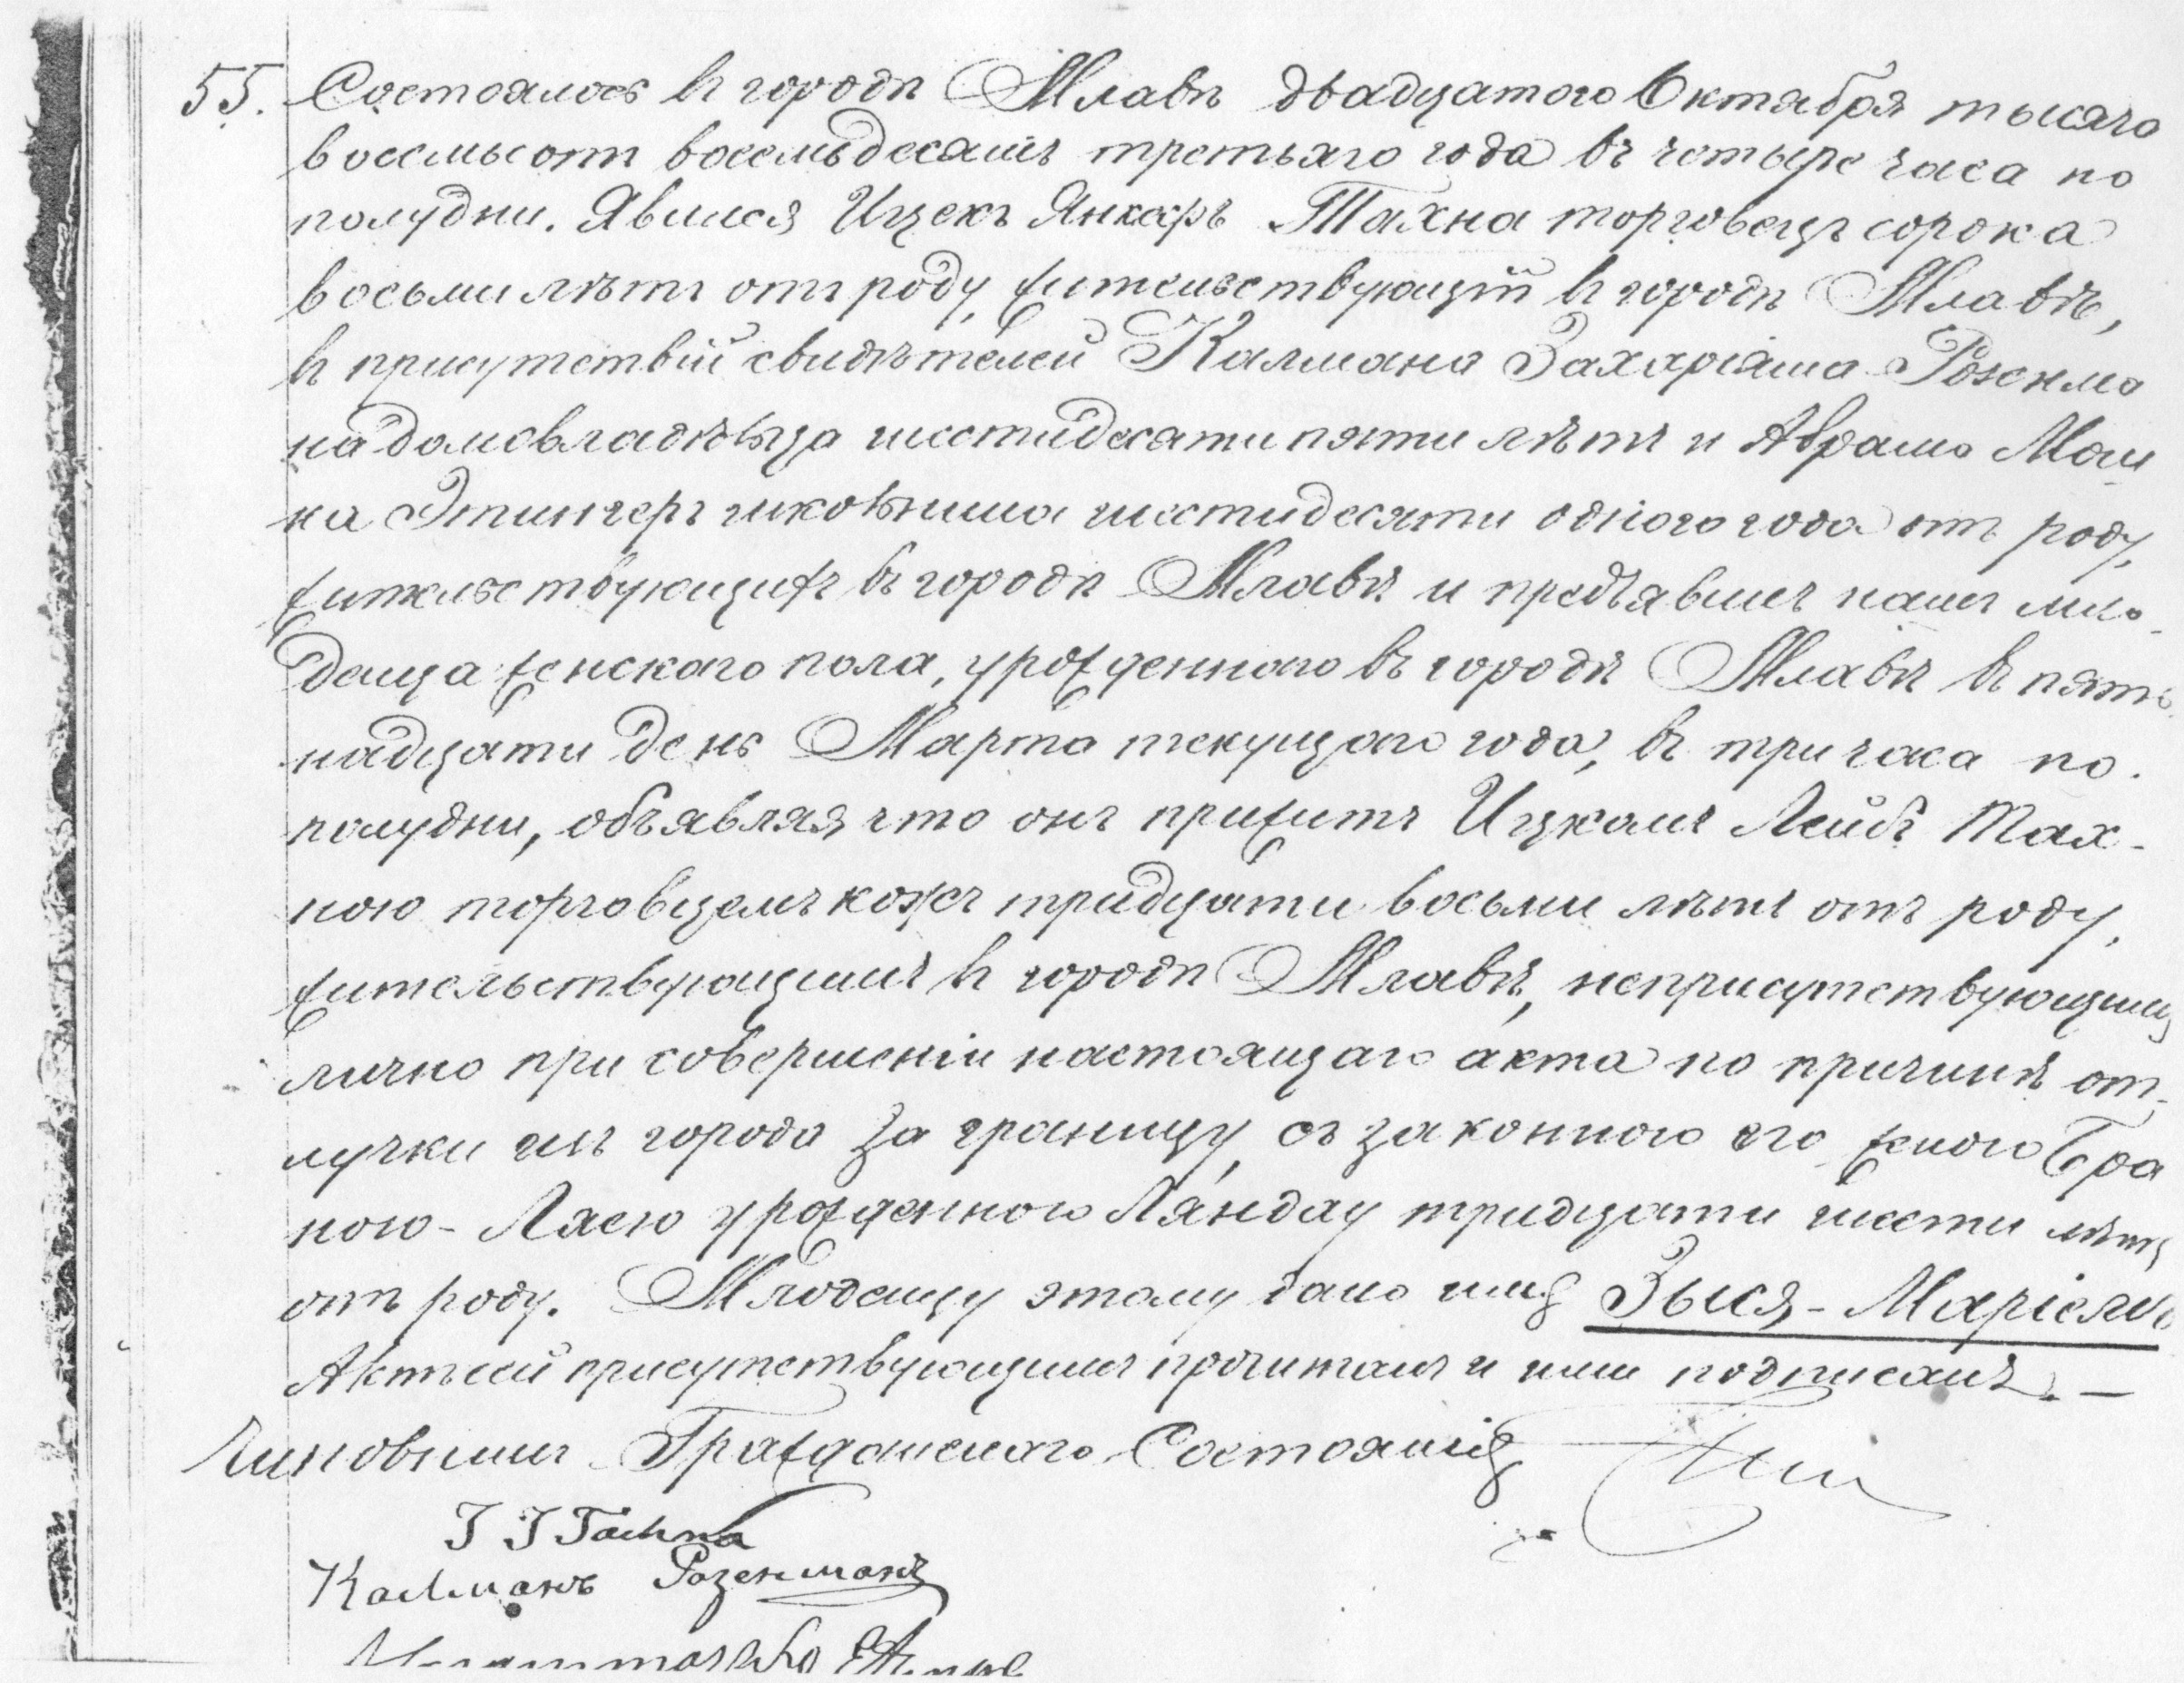 55. Состоялось въ городѣ Млавѣ двадцатого Октября тысяча
восемьсотъ восемьдесятъ третьяго года въ четыре часа по
полудни. Явился Ицекъ Янкефъ Тахна торговецъ сорока
восьми лѣтъ отъ роду, жительствующій въ городѣ Млавѣ,
въ присутствіи свидѣтелей Калмана Захаріяша Розенма
на домовладѣльца шестидесяти пяти лѣтъ и Абрама Мош
ка Этингеръ шковника шестидесяти одного года отъ роду,
жительствующихъ въ городѣ Млавѣ и предъявилъ намъ мла-
денца женскаго пола, урожденного въ городѣ Млавѣ въ пять
надцати день Марта текущаго года, въ три часа по
полудни, объявляя что онъ прижитъ Ицкомъ Лейбъ Тах-
ною торговцемъ кожъ тридцати восьми лѣтъ отъ роду,
жительствующимъ въ городѣ Млавѣ, неприсутствующимъ
лично при совершеніи настоящаго акта по причинѣ от-
лучки изъ города за границу, съ законною его женою Бра
ною-Ласею урожденною Ляндау тридцати шести лѣтъ
отъ роду. Младенцу этому дано имя Зыся-Маріемъ
Актъ сей присутствующимъ прочитанъ и ими подписанъ. —
Чиновникъ Гражданскаго Состоянія
J J Tachna
Калманъ Розенманъ